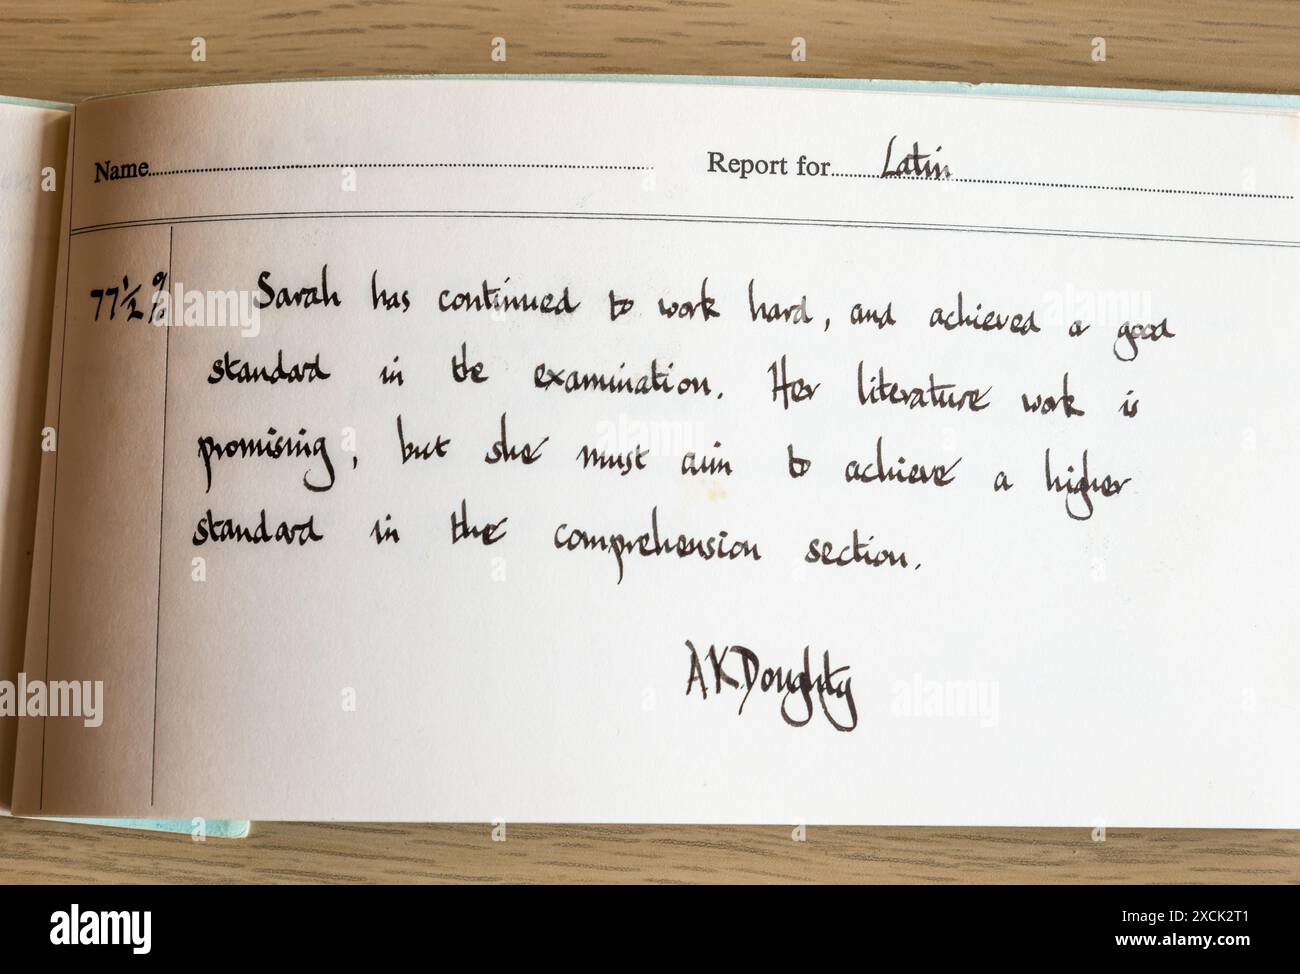 Name
Report for Latin
77½% Sarah has continued to work hard, and achieved a good
standard in the examination. Her literature work is
promising, but she must aim to achieve a higher
standard in the comprehension section.
AKDoughty
alamy
Image ID: 2XCK2T1
www.alamy.com